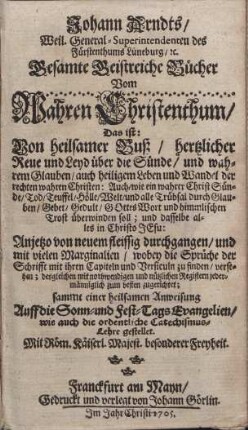 Johann Arndts/
Weil. General-Superintendenten des
Fürstenthums Lüneburg/ ꝛc.
Gesamte Geistreiche Bücher
Vom
Wahren Christenthum/
Das ist:
Von heilsamer Buß/ hertzlicher
Reue und Leyd über die Sünde/ und wah-
rem Glauben/ auch heiligem Leben und Wandel der
rechten wahren Christen: Auch/wie ein wahrer Christ Sün-
de/Tod/Teuffel/Hölle/Welt/und alle Trübsal durch Glau-
ben/ Gebet/ Gedult/ GOttes Wort und himmlischen
Trost überwinden soll; und dasselbe al-
les in Christo JEsu:
Anjetzo von neuem fleissig durchgangen/ und
mit vielen Marginalien/ wobey die Sprüche der
Schrifft mit ihren Capiteln und Versiculn zu finden/ verse-
hen; desgleichen mit nothwendigen und nützlichen Registern jeder-
männiglich zum besten zugerichtet;
sammt einer heilsamen Anweisung
Auff die Sonn- und Fest-Tags Evangelien/
wie auch die ordentliche Catechismus-
Lehre gestellet.
Mit Röm. Käiserl. Majest. besonderer Freyheit.
Franckfurt am Mayn/
Gedruckt und verlegt von Johann Görlin.
Im Jahr Christi 1705.